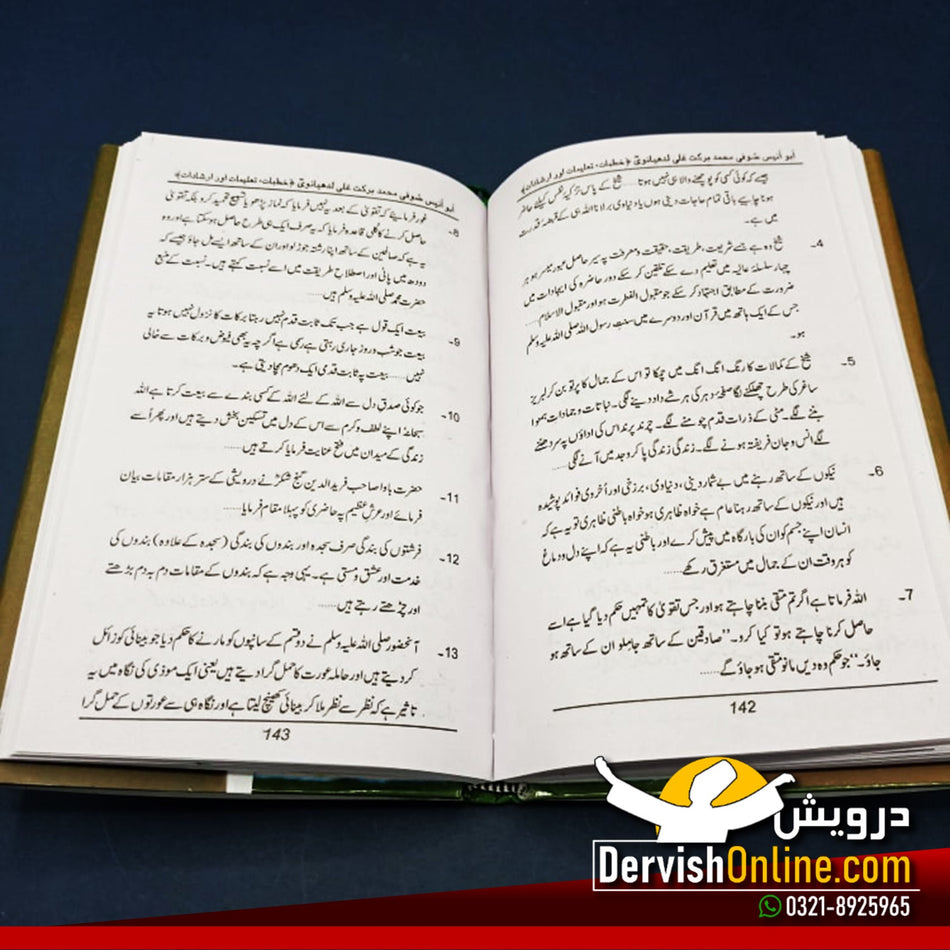 ابو انیس صوفی محمد برکت علی لدھیانوی ﴿خطبات، تعلیمات اور ارشادات﴾
جیسے کہ کوئی کسی کو پوچھنے والا ہی نہیں ہوتا...... شیخ کے پاس تزکیہ نفس کیلئے حاضر
ہونا چاہیے باقی تمام حاجات دینی ہوں یا دنیاوی برلانا اللہ ہی کے قبضہ قدرت
میں ہے۔
4۔ شیخ وہ ہے جسے شریعت، طریقت، حقیقت و معرفت پہ سیر حاصل عبور میسر ہو ہر
چہار سلسلۂ عالیہ میں تعلیم دے سکے تلقین کر سکے دور حاضرہ کی ایجادات میں
ضرورت کے مطابق اجتہاد کر سکے جو مقبول الفطرت ہو اور مقبول الاسلام......
جس کے ایک ہاتھ میں قرآن اور دوسرے میں سنت رسول اللہ صلی اللہ علیہ وسلم
ہو۔
5۔ شیخ کے کمالات کا رنگ انگ انگ میں چمکا تو اس کے جمال کا پرتو بن کر لبریز
ساغر کی طرح چھلکنے لگا صفحۂ دہر کی ہر شے داد دینے لگی۔ نباتات و جمادات ہموا
بننے لگے۔ مٹی کے ذرات قدم چومنے لگے۔ چرند پرند اس کی اداؤں پہ سر دھننے
لگے انس و جان فریفتہ ہونے لگے۔ زندگی زندگی پا کر وجد میں آنے لگی......
6۔ نیکوں کے ساتھ رہنے میں بے شمار دینی، دنیاوی، برزخی اور اُخروی فوائد پوشیدہ
ہیں اور نیکوں کے ساتھ رہنا عام ہے خواہ ظاہری ہو خواہ باطنی ظاہری تو یہ ہے کہ
انسان اپنے جسم کو ان کی بارگاہ میں پیش کرے اور باطنی یہ ہے کہ اپنے دل و دماغ
کو ہر وقت ان کے جمال میں مستغرق رکھے......
7۔ اللہ فرماتا ہے اگر تم متقی بننا چاہتے ہو اور جس تقویٰ کا تمہیں حکم دیا گیا ہے اسے
حاصل کرنا چاہتے ہو تو کیا کرو۔ ”صادقین کے ساتھ جا ملو ان کے ساتھ ہو
جاؤ۔“ جو حکم وہ دیں مانو متقی ہو جاؤ گے......
142
ابو انیس صوفی محمد برکت علی لدھیانوی ﴿خطبات، تعلیمات اور ارشادات﴾
8۔ غور فرمایئے کہ تقویٰ کے بعد یہ نہیں فرمایا کہ نماز پڑھو یا تسبیح تحمید کرو بلکہ تقویٰ
حاصل کرنے کا کلی قاعدہ فرمایا کہ یہ صرف ایک ہی طرح حاصل ہو سکتا ہے اور وہ
یہ ہے کہ صالحین کے ساتھ اپنا رشتہ جوڑ لو اور ان کے ساتھ ایسے مل جاؤ جیسے کہ
دودھ میں پانی اور اصطلاح طریقت میں اسے نسبت کہتے ہیں۔ نسبت کے منبع
حضرت محمد صلی اللہ علیہ وسلم ہیں......
9۔ بیعت ایک قول ہے جب تک ثابت قدم نہیں رہتا برکات کا نزول نہیں ہوتا یہ
بیعت جو شب و روز جاری رہتی ہے رسمی ہے اگرچہ یہ بھی فیوض و برکات سے خالی
نہیں...... بیعت پہ ثابت قدمی ایک دھوم مچا دیتی ہے۔
10۔ جو کوئی صدق دل سے اللہ کے لئے اللہ کے کسی بندے سے بیعت کرتا ہے اللہ
سبحانہٗ اپنے لطف و کرم سے اس کے دل میں تسکین بخش دیتے ہیں اور پھر اُسے
زندگی کے میدان میں فتح عنایت فرمایا کرتے ہیں۔
11۔ حضرت باوا صاحب فرید الدین گنج شکرؒ نے درویشی کے ستر ہزار مقامات بیان
فرمائے اور عرش عظیم پہ حاضری کو پہلا مقام فرمایا......
12۔ فرشتوں کی بندگی صرف سجدہ اور بندوں کی بندگی (سجدہ کے علاوہ) بندوں کی
خدمت اور عشق و مستی ہے۔ یہی وجہ ہے کہ بندوں کے مقامات دم بہ دم بڑھتے
اور چڑھتے رہتے ہیں......
13۔ آنحضور صلی اللہ علیہ وسلم نے دو قسم کے سانپوں کو مارنے کا حکم دیا جو بینائی کو زائل
کر دیتے ہیں اور حاملہ عورت کا حمل گرا دیتے ہیں یعنی ایک موذی کی نگاہ میں یہ
تاثیر ہے کہ نظر سے نظر ملا کر بینائی کھینچ لیتا ہے اور نگاہ ہی سے عورتوں کے حمل گرا
143
درویش
DervishOnline.com
0321-8925965